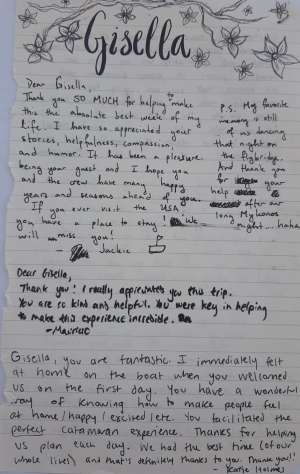 Gisella
Dear Gisella,
Thank you SO MUCH for helping to make
this the absolute best week of my
life. I have so appreciated your
stories, helpfulness, compassion,
and humor. It has been a pleasure
being your guest and I hope you
and the crew have many happy
years and seasons ahead of you.
If you ever visit the USA
you have a place to stay! We
will miss you!
- Jackie
P.S. My favorite
memory is still
of us dancing
that night on
the flybridge.
And thank you
for your
help
after our
long Mykonos
night... haha
Dear Gisella,
Thank you! I really appreciated you this trip.
You are so kind and helpful. You were key in helping
to make this experience incredible.
Gisella, you are fantastic. I immediately felt
at home on the boat when you welcomed
us on the first day. You have a wonderful
way of knowing how to make people feel
at home/happy/excited/etc. You facilitated the
perfect catamaran experience. Thanks for helping
us plan each day. We had the best time (of our
whole lives) and that's definitely thanks to you. Thank you!!
- Katie Holmes